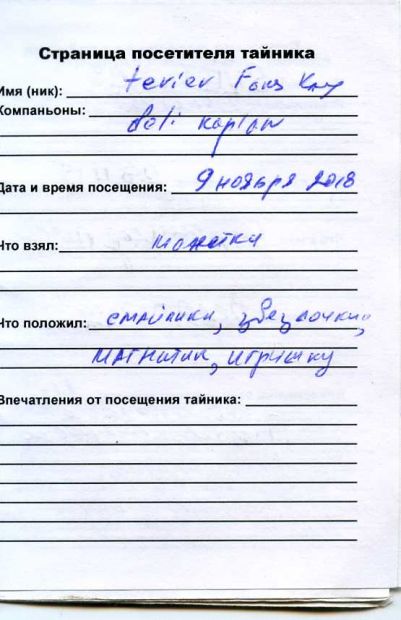 Страница посетителя тайника
Имя (ник): terier
Компаньоны:
Дата и время посещения: 9 ноября 2018
Что взял: монетки
Что положил: смайлики, звездочки,
магнитик, игрушку
Впечатления от посещения тайника: